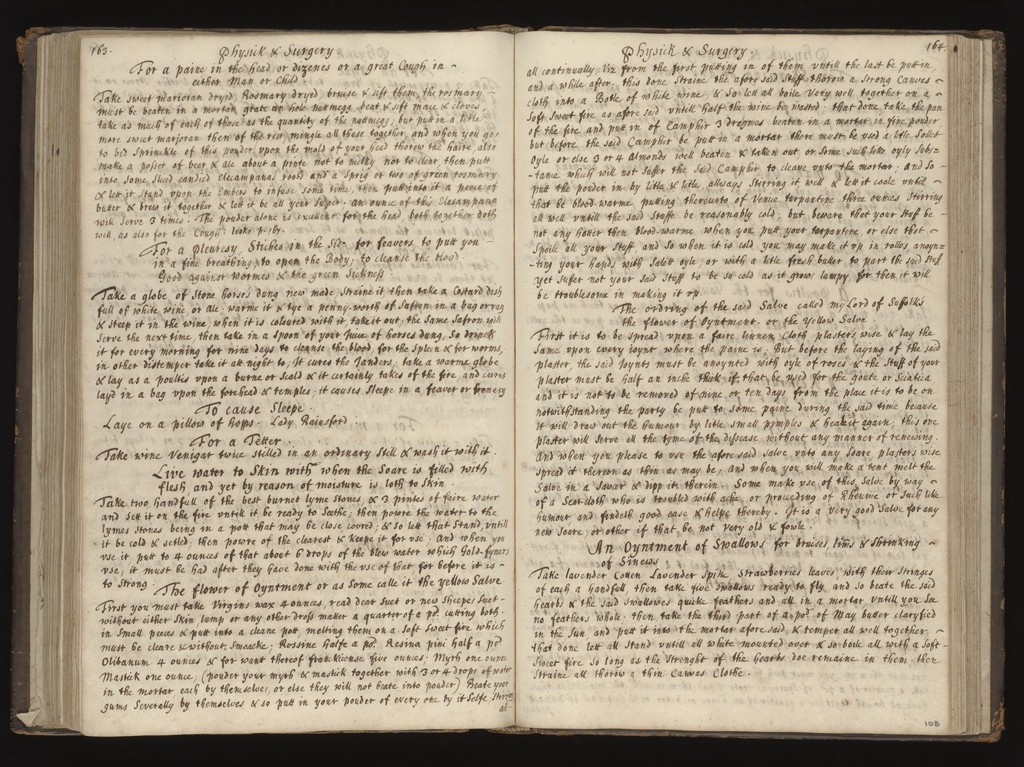 163.
Physick & Surgery
For a paine in the head or dizenes or a great Cough in
either Man or Child
Take sweet marioran dryed, Rosmary dryed, bruise & sift them, the rosmary
must be beaten in a mortar, grate an hole nutmegg, beat & sift mace & cloves,
take as much of each of those as the quantity of the nutmegg; but putt in a little
more sweet marjoran then of the rest, mingle all these together, and when you goe
to bed Sprinckle of this pouder upon the mold of your head thorow the haire, also
make a posset of beer & ale about a pinte not to milky nor to clear then putt
into some sliced candied elecampanas roots and a Sprig or two of green rosmary
& let it stand upon the Embers to infuse some time, then putt into it a peece of
butter & brew it together & let it be all your Super. an ounce of this Elecampana
will serve 3 times. The pouder alone is excelent for the head, both together doth
well, as also for the Cough: looke p. 167.
For a pleuresy, Stiches in the Side for feavers, to putt you
in a fine breathing, to open the Body, to cleanse the blood
Good against wormes & the green Sickness
Take a globe of Stone horses dung new made Straine it then take a Costard dish
full of white wine or ale, warme it & tye a penny-worth of Safron in a bag or rag
& steep it in the wine, when it is coloured with it, take it out, the same Safron will
Serve the next time, then take in a spoon of your Juice of horses dung, So drinck
it for every morning for nine days to cleanse the blood, for the Spleen & for worms,
in other distemper take it at night to; It cures the Janders, Take a warme globe
& lay as a poultis upon a burne or Scald & it certainly takes of the fire, and cures
layd in a bag upon the forehead & temples; it causes Sleepe in a feaver or frenecy
To cause Sleepe
Laye on a pillow of hopps. Lady Rainsford
For a Tetter.
Take wine Venigar twice stilled in an ordinary Still & wash it with it.
Live water to Skin with when the Soare is filled with
flesh and yet by reason of moisture is loth to Skin.
Take two handfull of the best burned lyme stones, & 3 pintes of faire water
and Sett it on the fire untill it be ready to Seethe; then powre the water to the
lymes Stones being in a pott that may be close covred, & so lett that Stand untill
it be cold & setled, then powre of the clearest & keepe it for use: And when you
use it putt to 4 ounces of that about 6 drops of the blew water which Gold-fyners
use, it must be had after they have done with the use of that for before it is
to Strong. The flower of Oyntment or as some calle it the yellow Salve
First you must take Virgins wax 4 ounces, read dear Suet or new Sheepes Suet
without either Skin lump or any other dross matter a quarter of a pd. cutting both
in Small peeces & putt into a cleane pott melting them on a Soft Sweet fire which
must be cleare & without Smoacke; Rossine halfe a po: Resina pini half a pod
Olibanum 4 ounces & for want thereof franckicense five ounces; Myrh one ounce
Mastick one ounce, (pouder your myrh & mastick together with 3 or 4 drops of water
in the mortar each by themselves, or else they will not beate into pouder) Beate your
gums Severally by themselves & so putt in your pouder of every one by it Selfe, Stirring
all-
164
Physick & Surgery.
all continually Viz from the first putting in of them untill the last be putt in
and a while after; this done Straine the afore said Stuff thorow a Strong Canves
cloth into a Botle of white wine, & So lett all boile Very well together on a
Soft Sweet fire as afore said untill half the wine be wasted: that done take the pan
of the fire and putt in of Camphir 3 dragmes beaten in a mortar in fine pouder
but before the said Camphir be putt in a mortar there must be used a litle Sallet
Oyle or else 3 or 4 Almonds well beaten & taken out or Some such like oyly Subs-
-tance which will not Suffer the Said Camphir to cleave upto the mortar, and So
putt the pouder in by litle & litle, allways Sterring it well & lett it coole untill
that be blood-warme, putting thereunto of Venice turpantine three ounces Stirring
all well untill the said Stuffe be reasonably cold, but beware that your Stuf be
not any hotter then blood-warme when you putt your turpantine, or else that
Spoile all your Stuff and So when it is cold you may make it up in rolles anoyn-
-ting your hands with Salet oyle, or with a litle fresh butter to part the said Stuff
yet Suffer not your Said Stuff to be so cold as it grows lumpy, for then it will
be troublesome in making it up.
The ordring of the said Salve called my Lord of Suffolks
the flower of Oyntment, or the Yellow Salve
First it is to be Spread upon a faire linnen Cloth plasters wise & lay the
Same upon every ioynt where the paine is; But before the laying of the said
plaster, the said ioynts must be anoynted with oyle of roses & the Stuff of your
plaster must be half an inche thick, if that be used for the goute or Sciatica
and it is not to be removed of nine or ten days from the place it is to be on
notwithstanding the party be putt to Some paine during the said time because
it will draw out the humour by litle small pimples & heal it again, this one
plaster will serve all the tyme of the dissease without any manner of renewing.
And when you please to use the afore said Salve unto any Soare plasters wise
spread it thereon as thin as may be; And when you will make a tent melt the
Salve in a Sawser & dipp it therein. Some make use of this Salve by way
of a Seare-cloth who is troubled with ache, or proceding of Rheume or Such like
humour and findeth good ease & helpe thereby. It is a very good Salve for any
new Soare, or other if that be not Very old & fowle.
An Oyntment of Swallows for bruised lims & Shrinking
of Sinews
Take lavender Cotten Lavender Spike Strawberries leaves with their Stringes
of each a handfull, then take five Swallows ready to fly, and So beate the said
hearbs & the said Swallowes quike feathers and all in a mortar untill you See
no feathers whole; then take the third part of a pod. of May butter claryfied
in the Sun, and putt it into the mortar afore said, & temper all well together
that done lett all Stand untill all white mounted over & so boile all with a Soft
Sweet fire so long as the Strenght of the hearbs doe remaine in them then
Straine all thorow a thin Canvas Clothe.
108